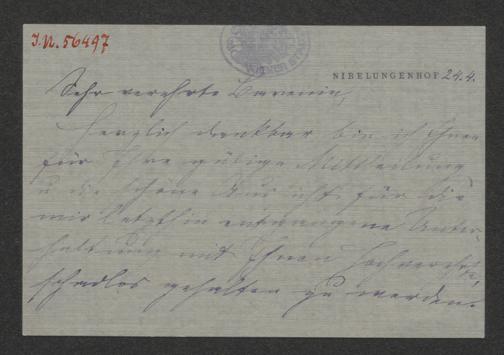 J.N. 56497
NIBELUNGENHOF 24.4.
Sehr verehrte Baronin,
Herzlich dankbar bin ich Ihnen
für Ihre gütige Mittheilung
u die schöne Aussicht für die
mir letzthin entgangene Unter-
haltung mit Ihnen
schadlos gehalten zu werden.